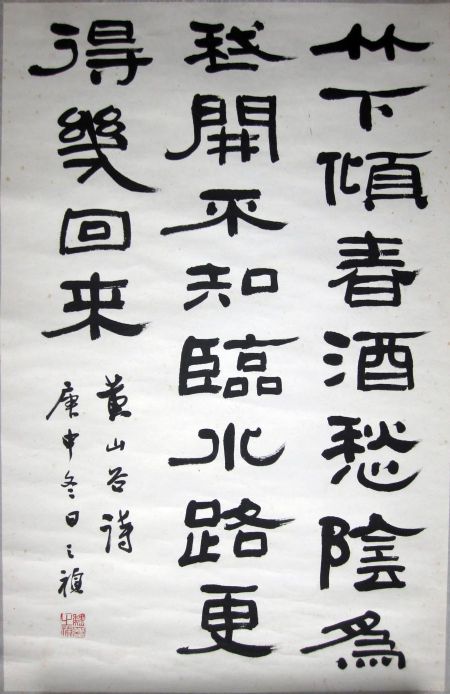 竹下傾春酒愁陰爲
我開不知臨水路更
得幾回来
黄山谷詩
庚申冬日之禎